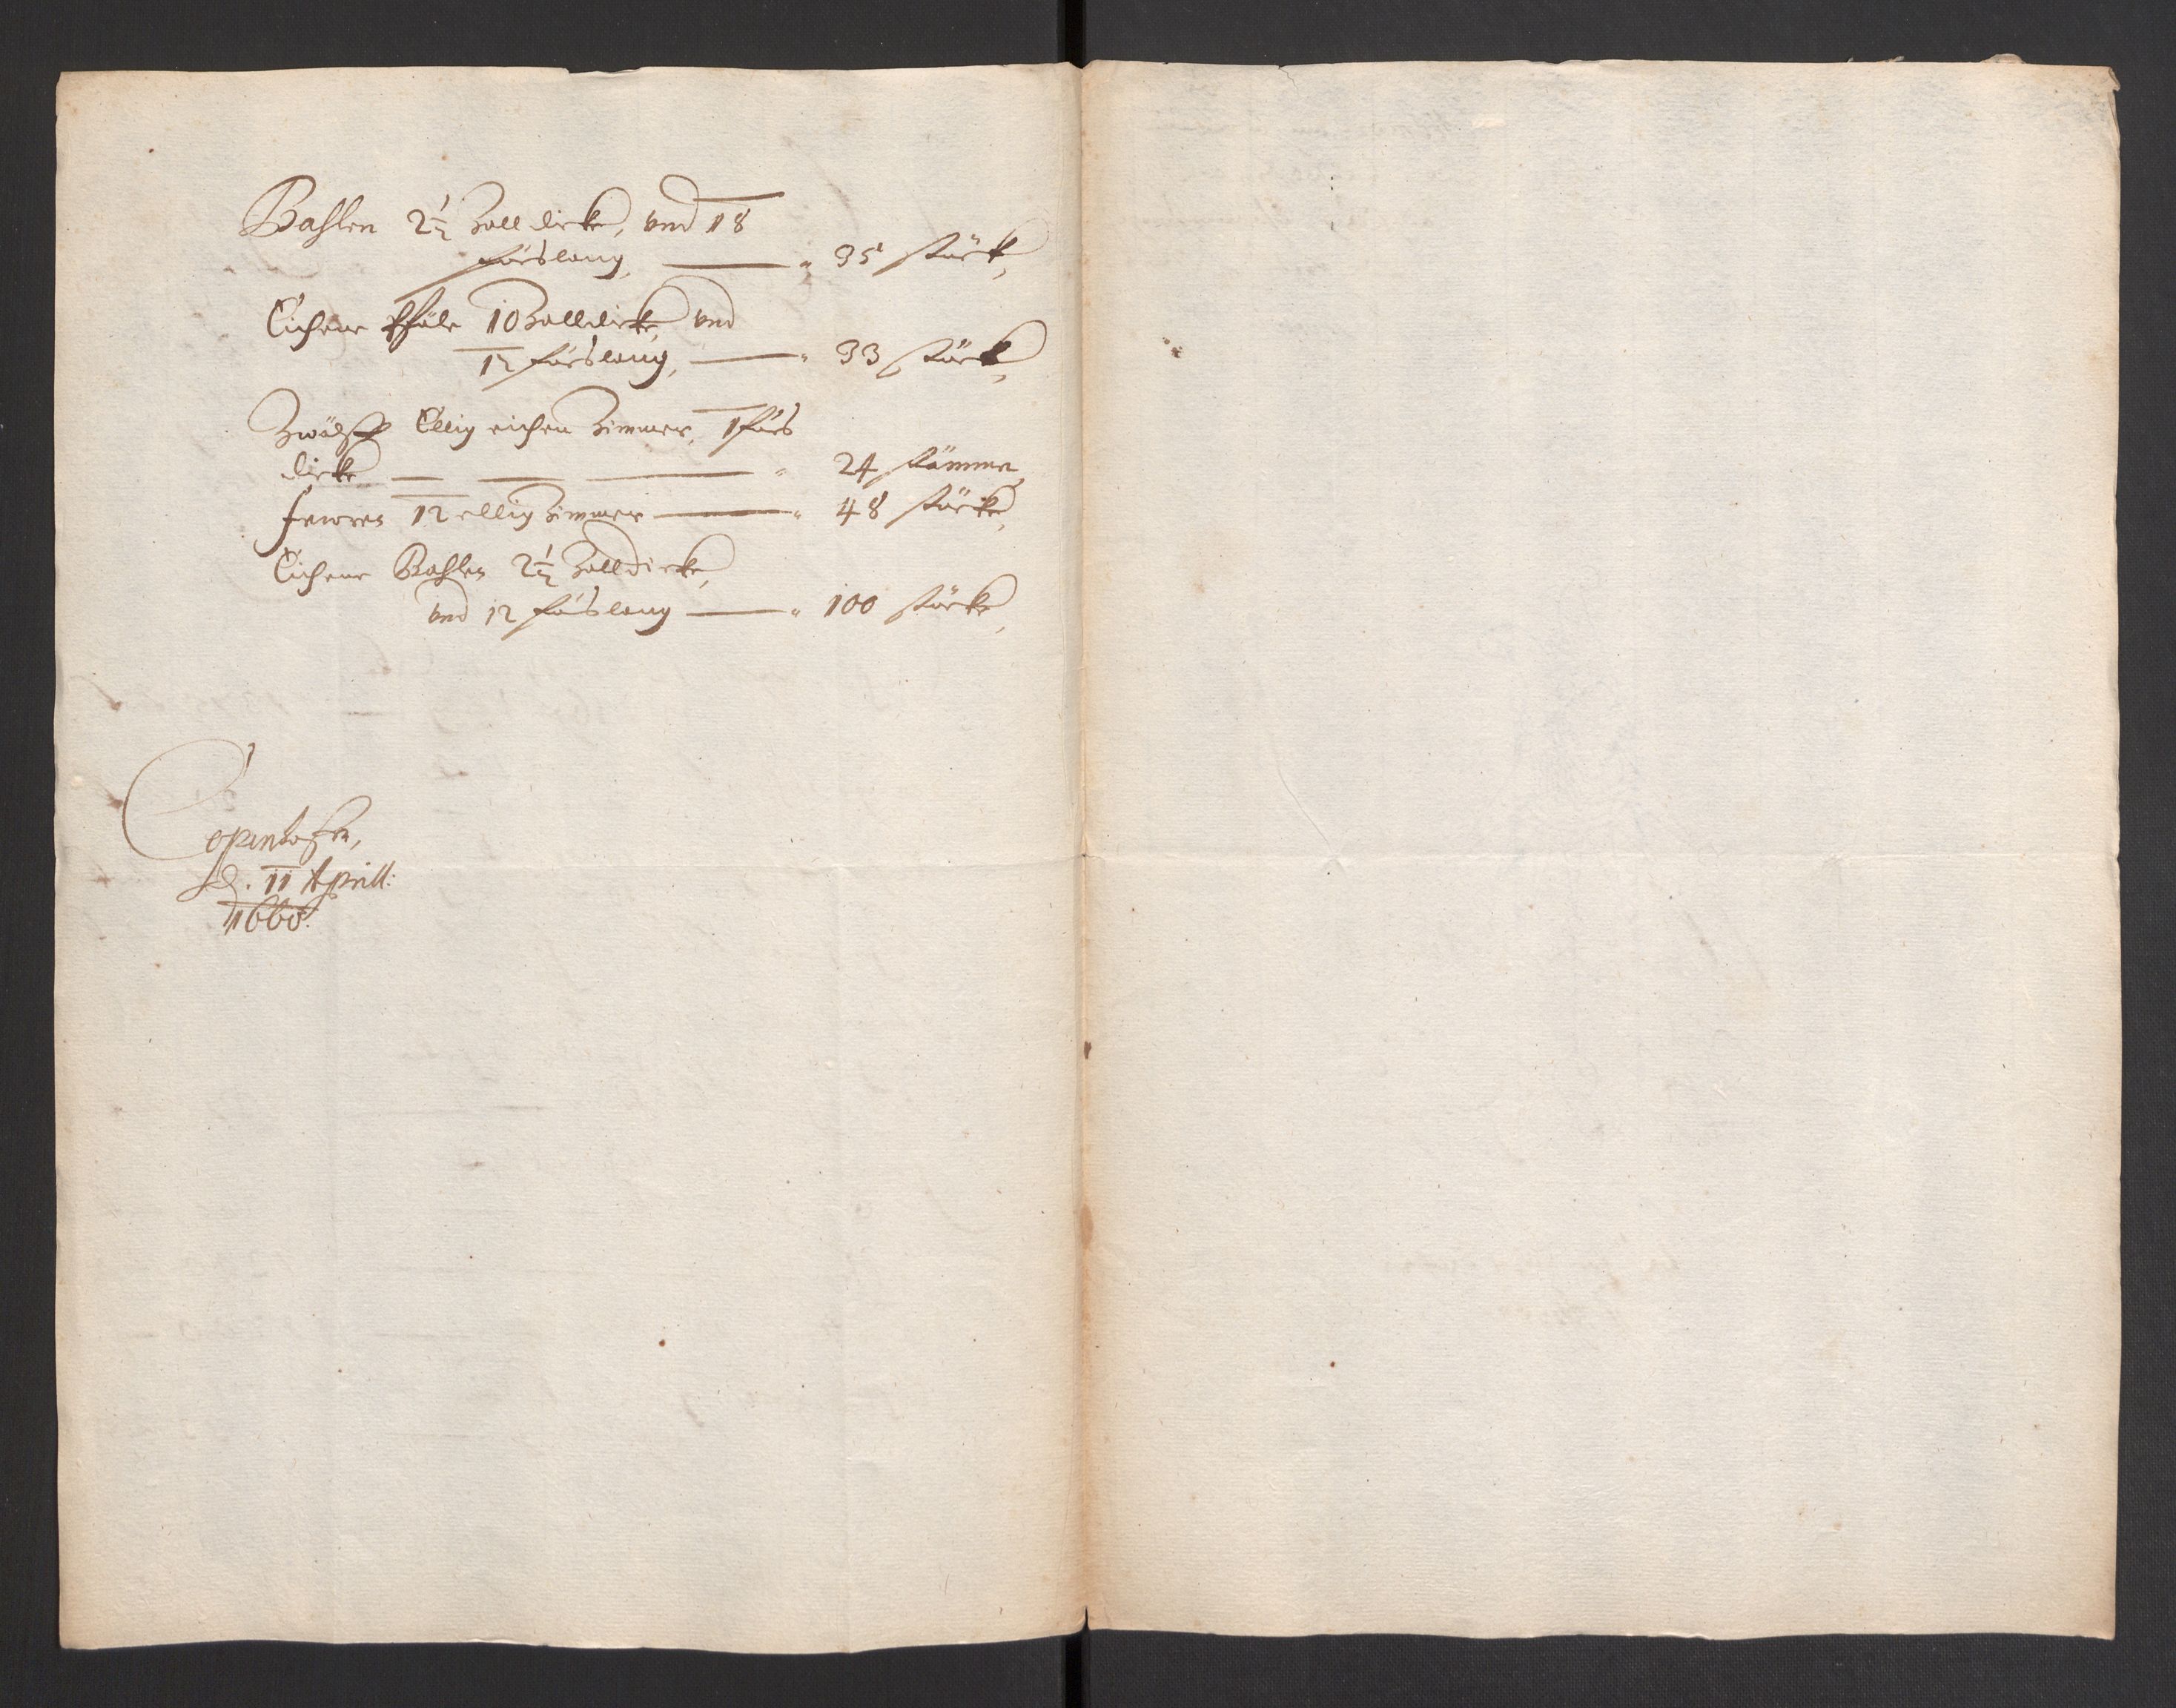 Bohlen 2½ Zoll dicke, und 18
fueslang, — 35 stück,
Eichene Pfäle 10 Zolldicke und
12 fueslang, — 33 stück,
Zwölff Ellig eichen Zimmer, 1 fues
dicke — 24 stämme,
feuren 12 ellig Zimmer — 48 stücke,
Eichene Bohlen 2½ Zolldicke,
und 12 fueslang — 100 stücke,
Copenhagen,
d. 11 Aprill: